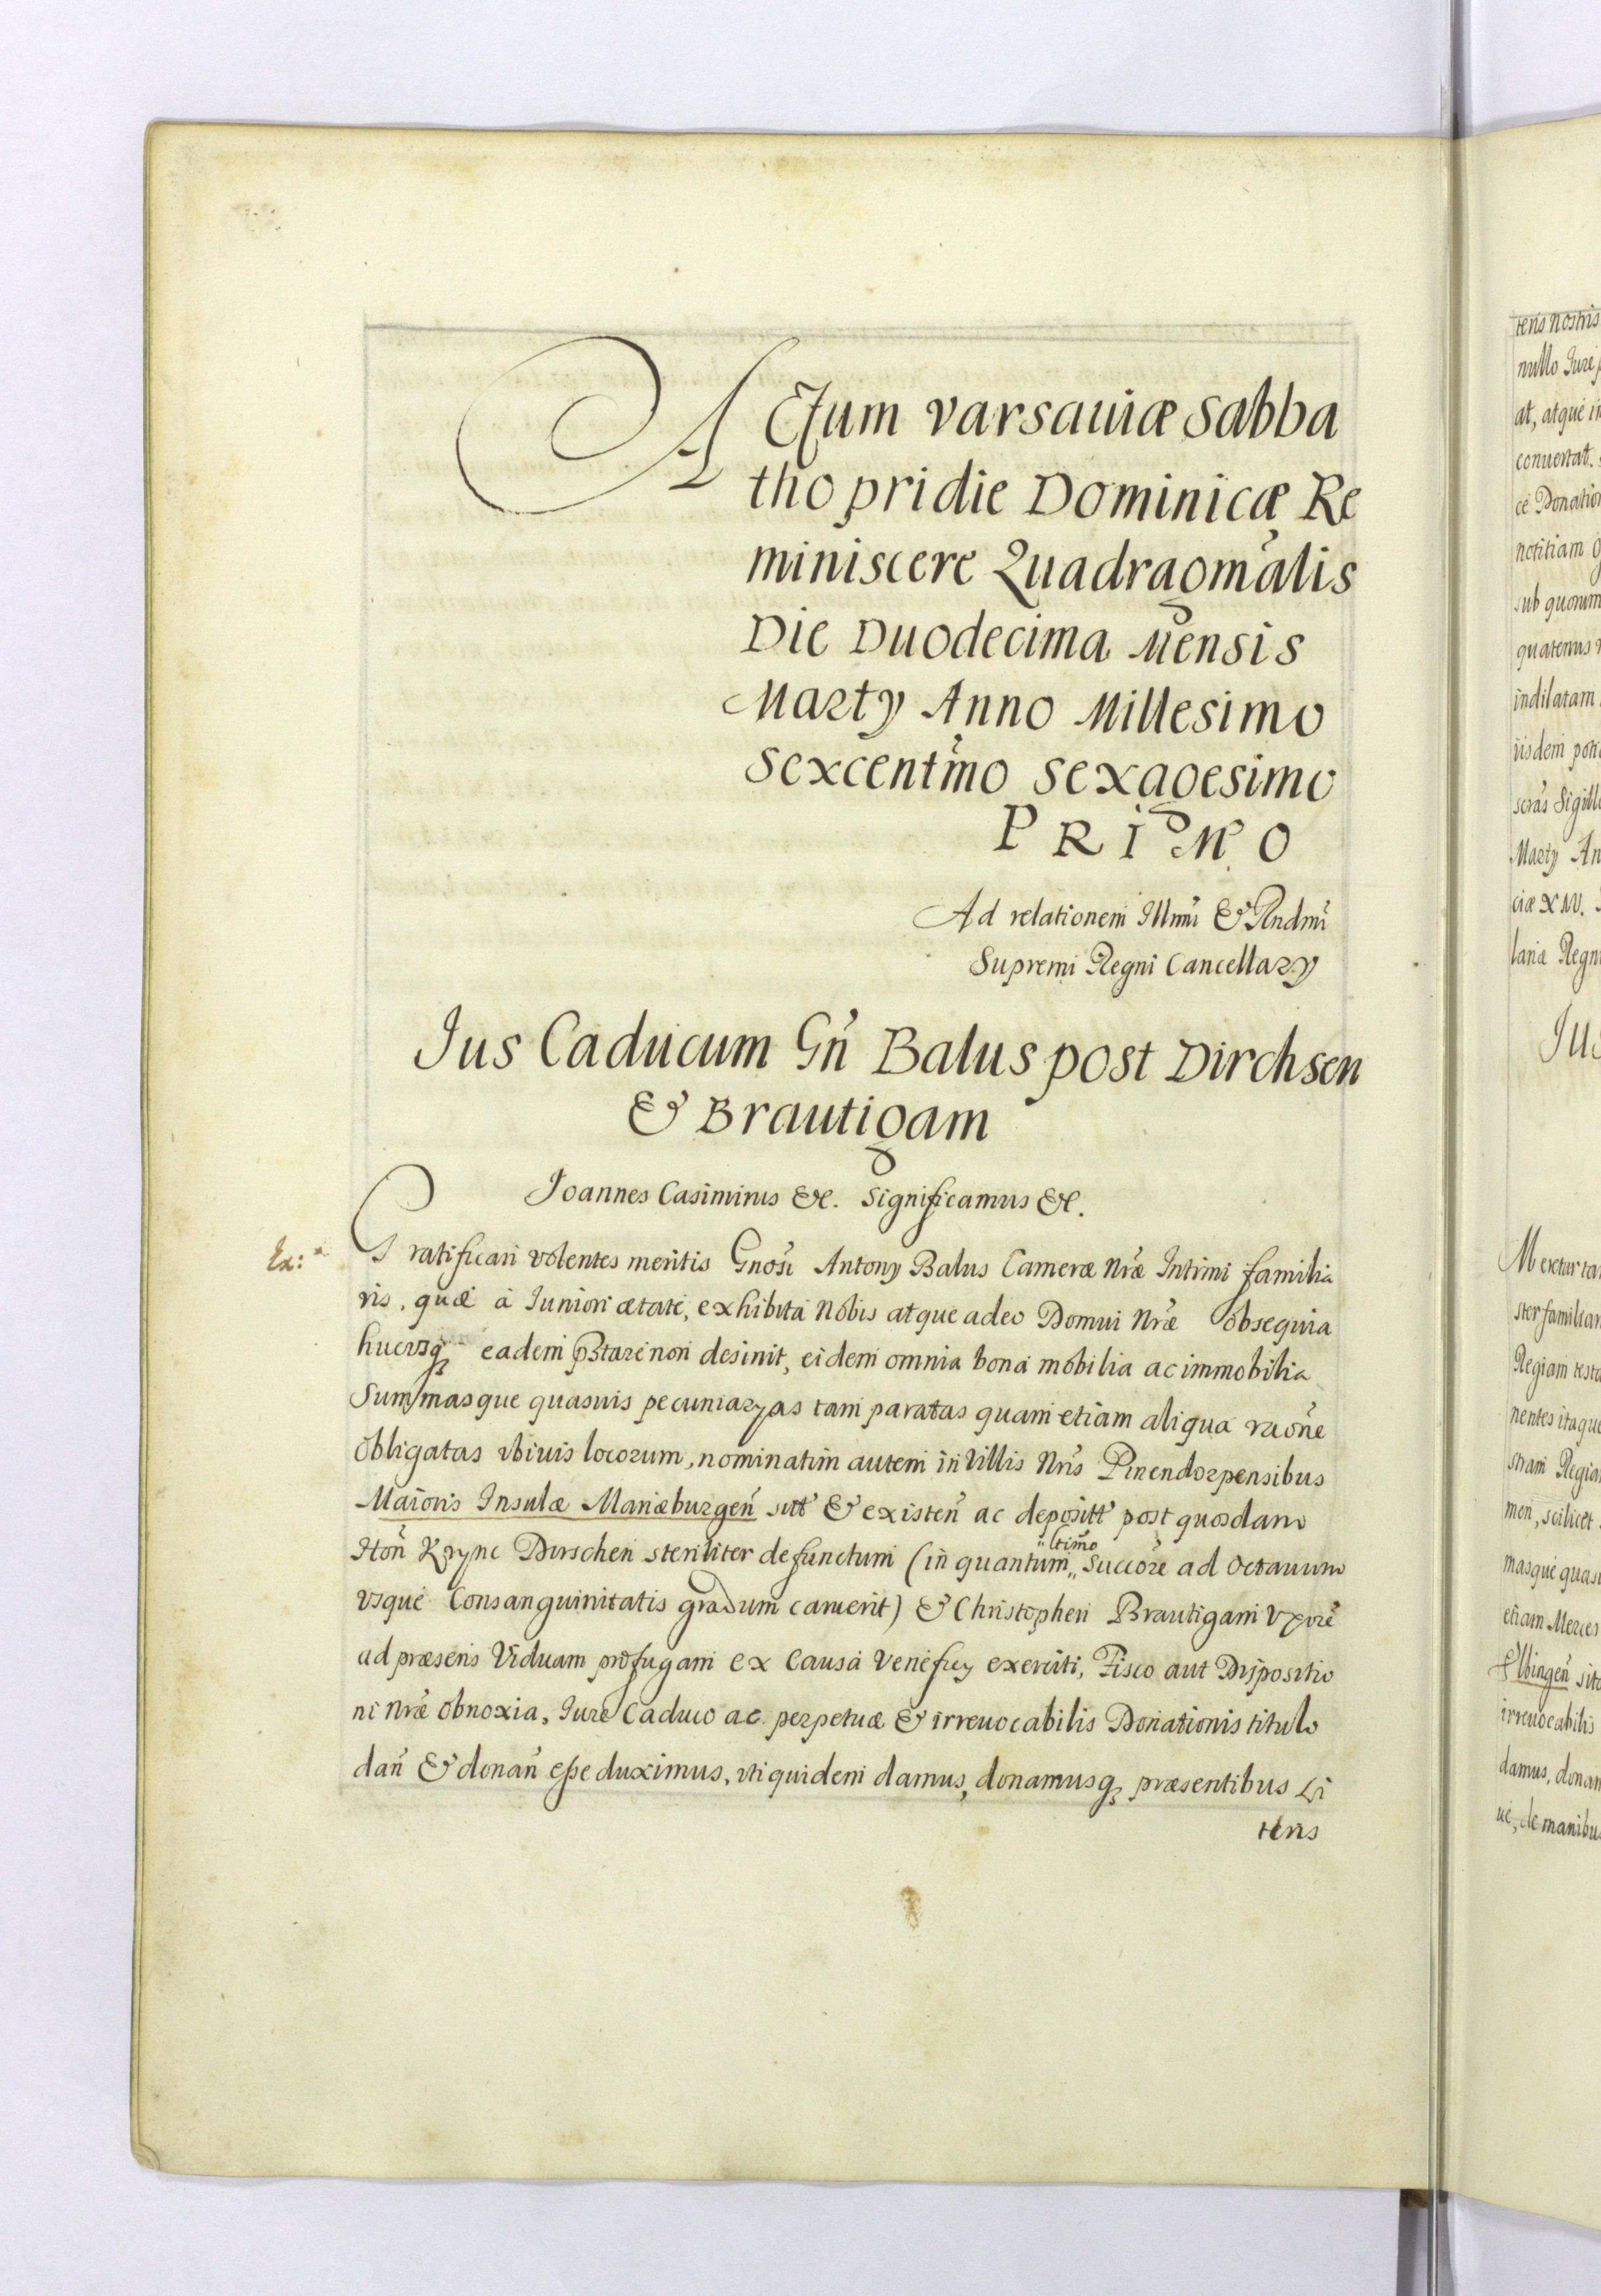 ACtum Varsauiæ Sabba
tho pridie Dominicæ Re
miniscere Quadragm̃alis
Die Duodecima Mensis
Marty Anno Millesimo
Sexcentm̃o Sexagesimo
PRIMO
Ad relationem Illmi͂ & Rndmi͂
Supremi Regni Cancellary
Ius Caducum Gñ Balus post Dirchsen
& Brautigam
Joannes Casimirus &c. Significamus &c.
Ex:
Gratificari volentes meritis Gnosi͂ Antony Balus Cameræ Nr̃æ Intimi familia
ris, quæ à Iuniori ætate, exhibita Nobis atque adeo Domui Nr̃æ obsequia
hucusq̨ eadem pstare non desinit, eidem omnia bona mobilia ac immobilia
Summasque quasuis pecuniaryas tam paratas quam etiam aliqua raõne
obligatas vbiuis locorum, nominatim autem in Villis Nr̃is Pinendorpensibus
Maioris Insulæ Mariæburgeñ sitt̃ & existeñ ac depositt̃ post quosdam
Hoñ Krync Dirschen steriliter defunctum (in quantum „ Succorẽ ad octauum
„ltimo
vsque Consanguinitatis gradum caruerit) & Christopheri Brautigam Vxorẽ
ad præsens Viduam profugam ex Causa Veneficy exerciti, Fisco aut Dispositio
ni Nr̃æ obnoxia, Iure Caduco ac perpetuæ & irreuocabilis Donationis titulo
dañ & donañ esse duximus, vti quidem damus, donamusq̨ præsentibus Li
teris
teris nostris
nullo Jure
at, atque in
conuertat.
ce Donation
notitiam
sub quorum
quatenus
indilatam
iisdem
Sigill
Marty An
ciæ XIIV.
lariæ Regn
Jus
Meretur
ster familiar
Regiam
nentes itaque
stram Regia
men, scilicet
masque quas
etiam Merces
Elbingeñ sit
irreuocabilis
damus, donam
ue, de manibus